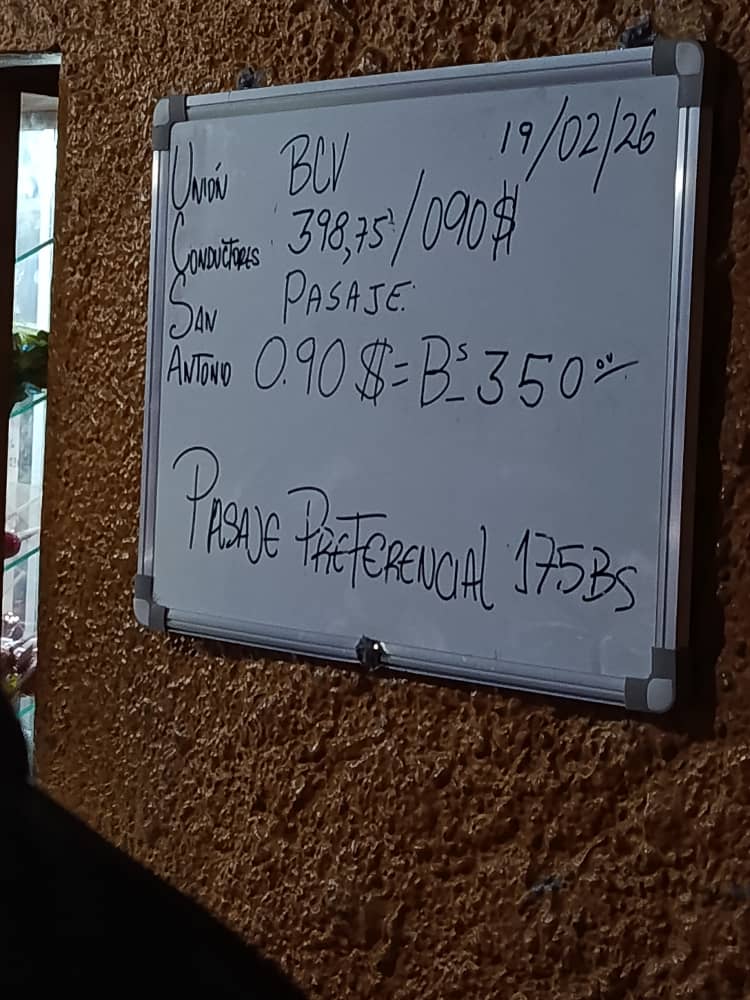 UNIÓN BCV 19/02/26
CONDUCTORES 398,75/090$
SAN PASAJE
ANTONIO 0.90 $ = Bs 350 00
PASAJE PREFERENCIAL 175BS